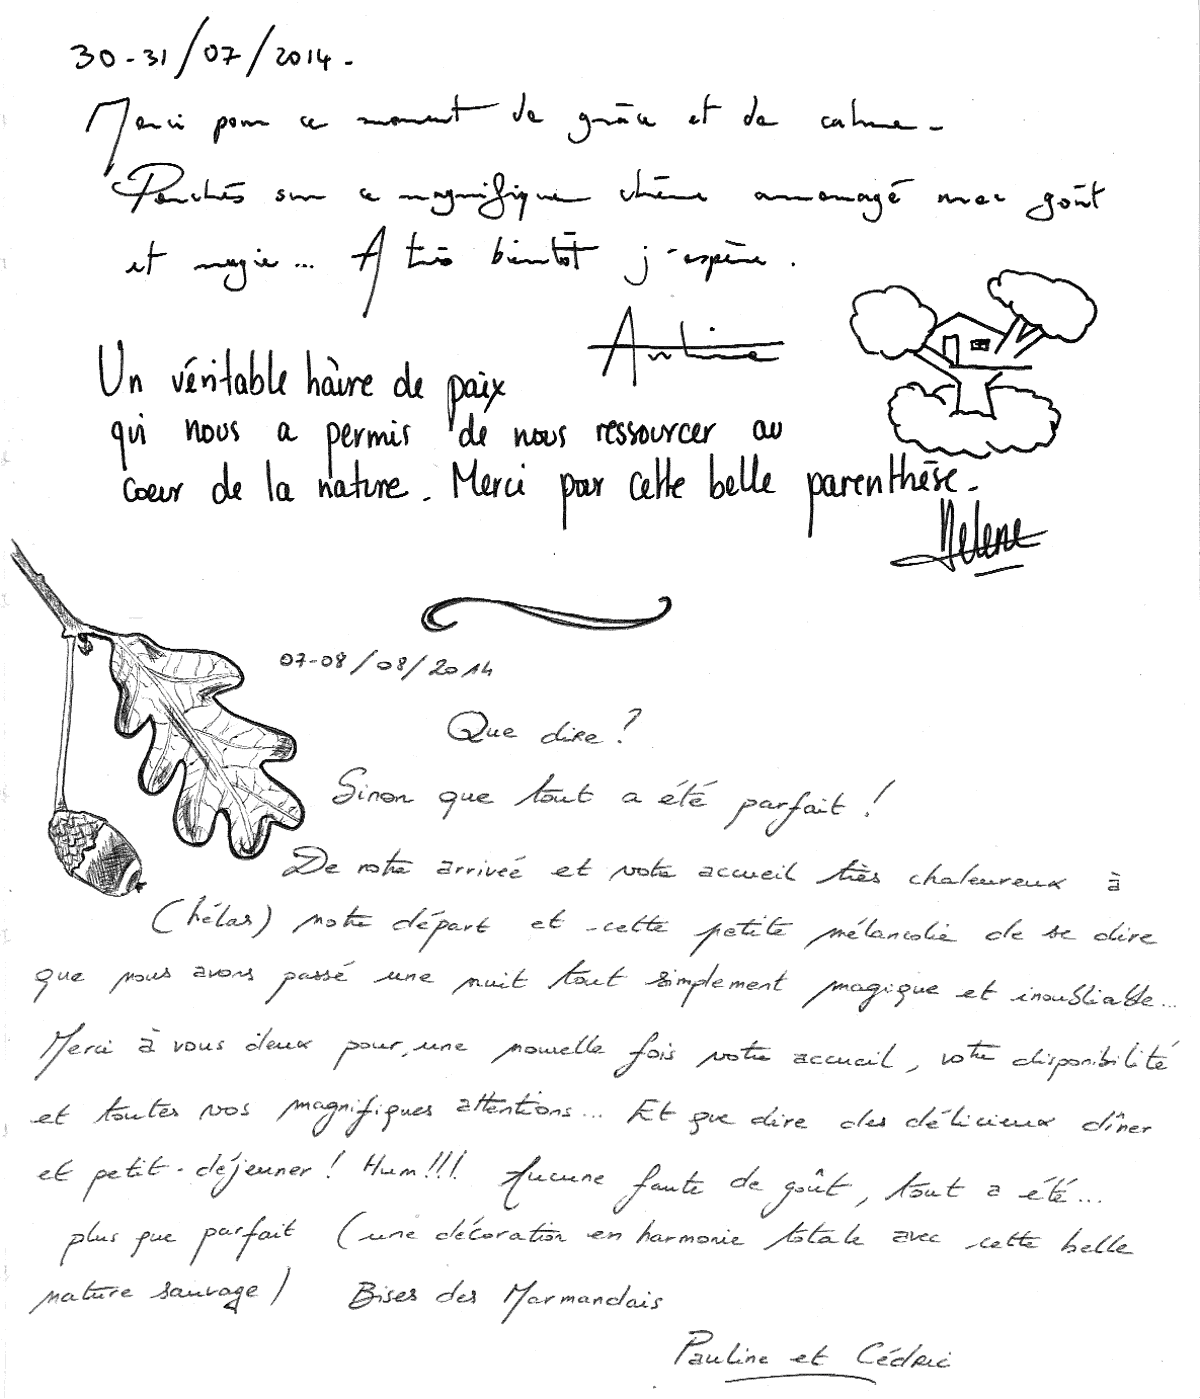 30-31/07/2014.
Merci pour ce moment de grâce et de calme.
Perchés sur ce magnifique chêne aménagé avec goût
et magie... A très bientôt j'espère.
Un véritable hâvre de paix
qui nous a permis de nous ressourcer au
coeur de la nature. Merci pour cette belle parenthèse.
Helene
07-08/08/2014
Que dire ?
Sinon que tout a été parfait !
De notre arrivée et votre accueil très chaleureux à
(hélas) notre départ et cette petite mélancolie de se dire
que nous avons passé une nuit tout simplement magique et inoubliable...
Merci à vous deux pour, une nouvelle fois votre accueil, votre disponibilité
et toutes vos magnifiques attentions... Et que dire des délicieux dîner
et petit-déjeuner ! Hum !!! Aucune faute de goût, tout a été...
plus que parfait (une décoration en harmonie totale avec cette belle
nature sauvage)   Bises des Marmandais
Pauline et Cédric